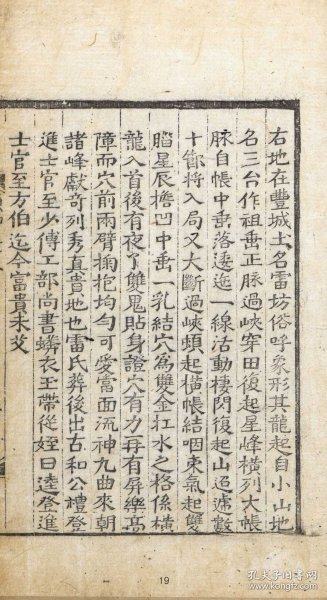 右地在豐城土名雷坊俗呼象形其龍起自小山地
名三台作祖垂正脉過峽穿田復起星峰橫列大帳
脉自帳中垂落逶迤一線活動棲閃復起山迢遞數
十節將入局又大斷過峽頓起橫帳結咽束氣起雙
腦星辰擔凹中垂一乳結穴為雙金扛水之格係橫
龍入首後有夜了雙鬼貼身證穴有力再有屏樂高
障而穴前兩臂掬抱均勻可愛當面流神九曲來朝
諸峰獻奇列秀真貴地也雷氏葬後出古和公禮登
進士官至少傅工部尚書蟒衣玉帶從姪曰逵登進
士官至方伯迄今富貴未艾
19
孔夫子旧书网
www.kongfz.com